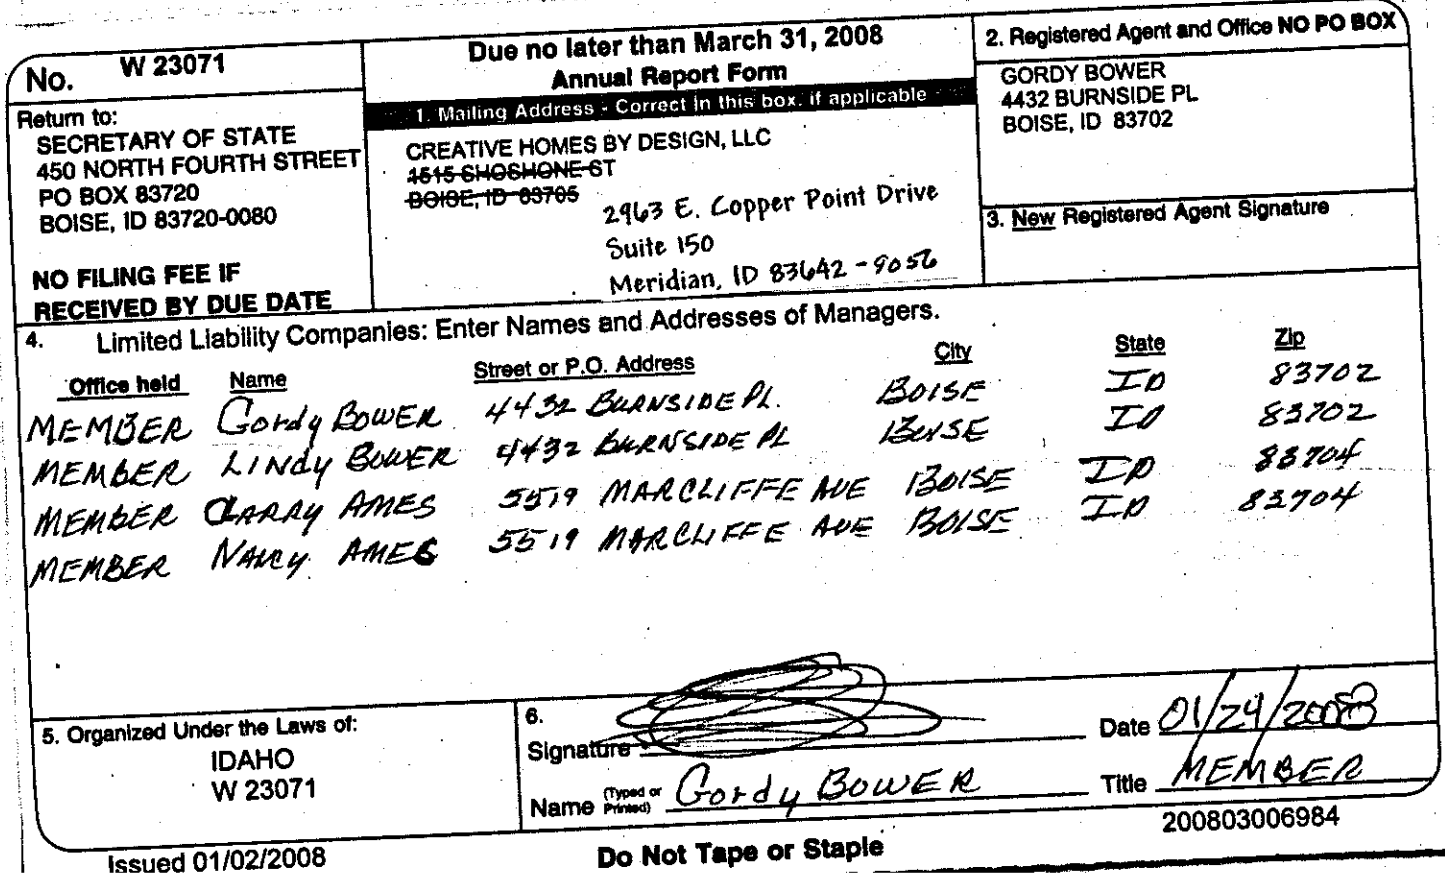 No. W 23071
Return to:
SECRETARY OF STATE
450 NORTH FOURTH STREET
PO BOX 83720
BOISE, ID 83720-0080
NO FILING FEE IF
RECEIVED BY DUE DATE
Due no later than March 31, 2008
Annual Report Form
1. Mailing Address - Correct in this box. if applicable
CREATIVE HOMES BY DESIGN, LLC
4515 SHOSHONE ST
BOISE, ID 83705
2963 E. Copper Point Drive
Suite 150
Meridian, ID 83642-9056
2. Registered Agent and Office NO PO BOX
GORDY BOWER
4432 BURNSIDE PL
BOISE, ID 83702
3. New Registered Agent Signature
4. Limited Liability Companies: Enter Names and Addresses of Managers.
Office held Name Street or P.O. Address City State Zip
MEMBER Gordy BOWER 4432 BURNSIDE PL. BOISE ID 83702
MEMBER LINdy BOWER 4432 BURNSIDE PL BOISE ID 83702
MEMBER LARRY AMES 5519 MARCLIFFE AVE BOISE ID 83704
MEMBER NANCY AMES 5519 MARCLIFFE AVE BOISE ID 83704
5. Organized Under the Laws of:
IDAHO
W 23071
6.
Signature
Date 01/24/2008
Name (Typed or Printed) Gordy BOWER
Title MEMBER
200803006984
Issued 01/02/2008
Do Not Tape or Staple